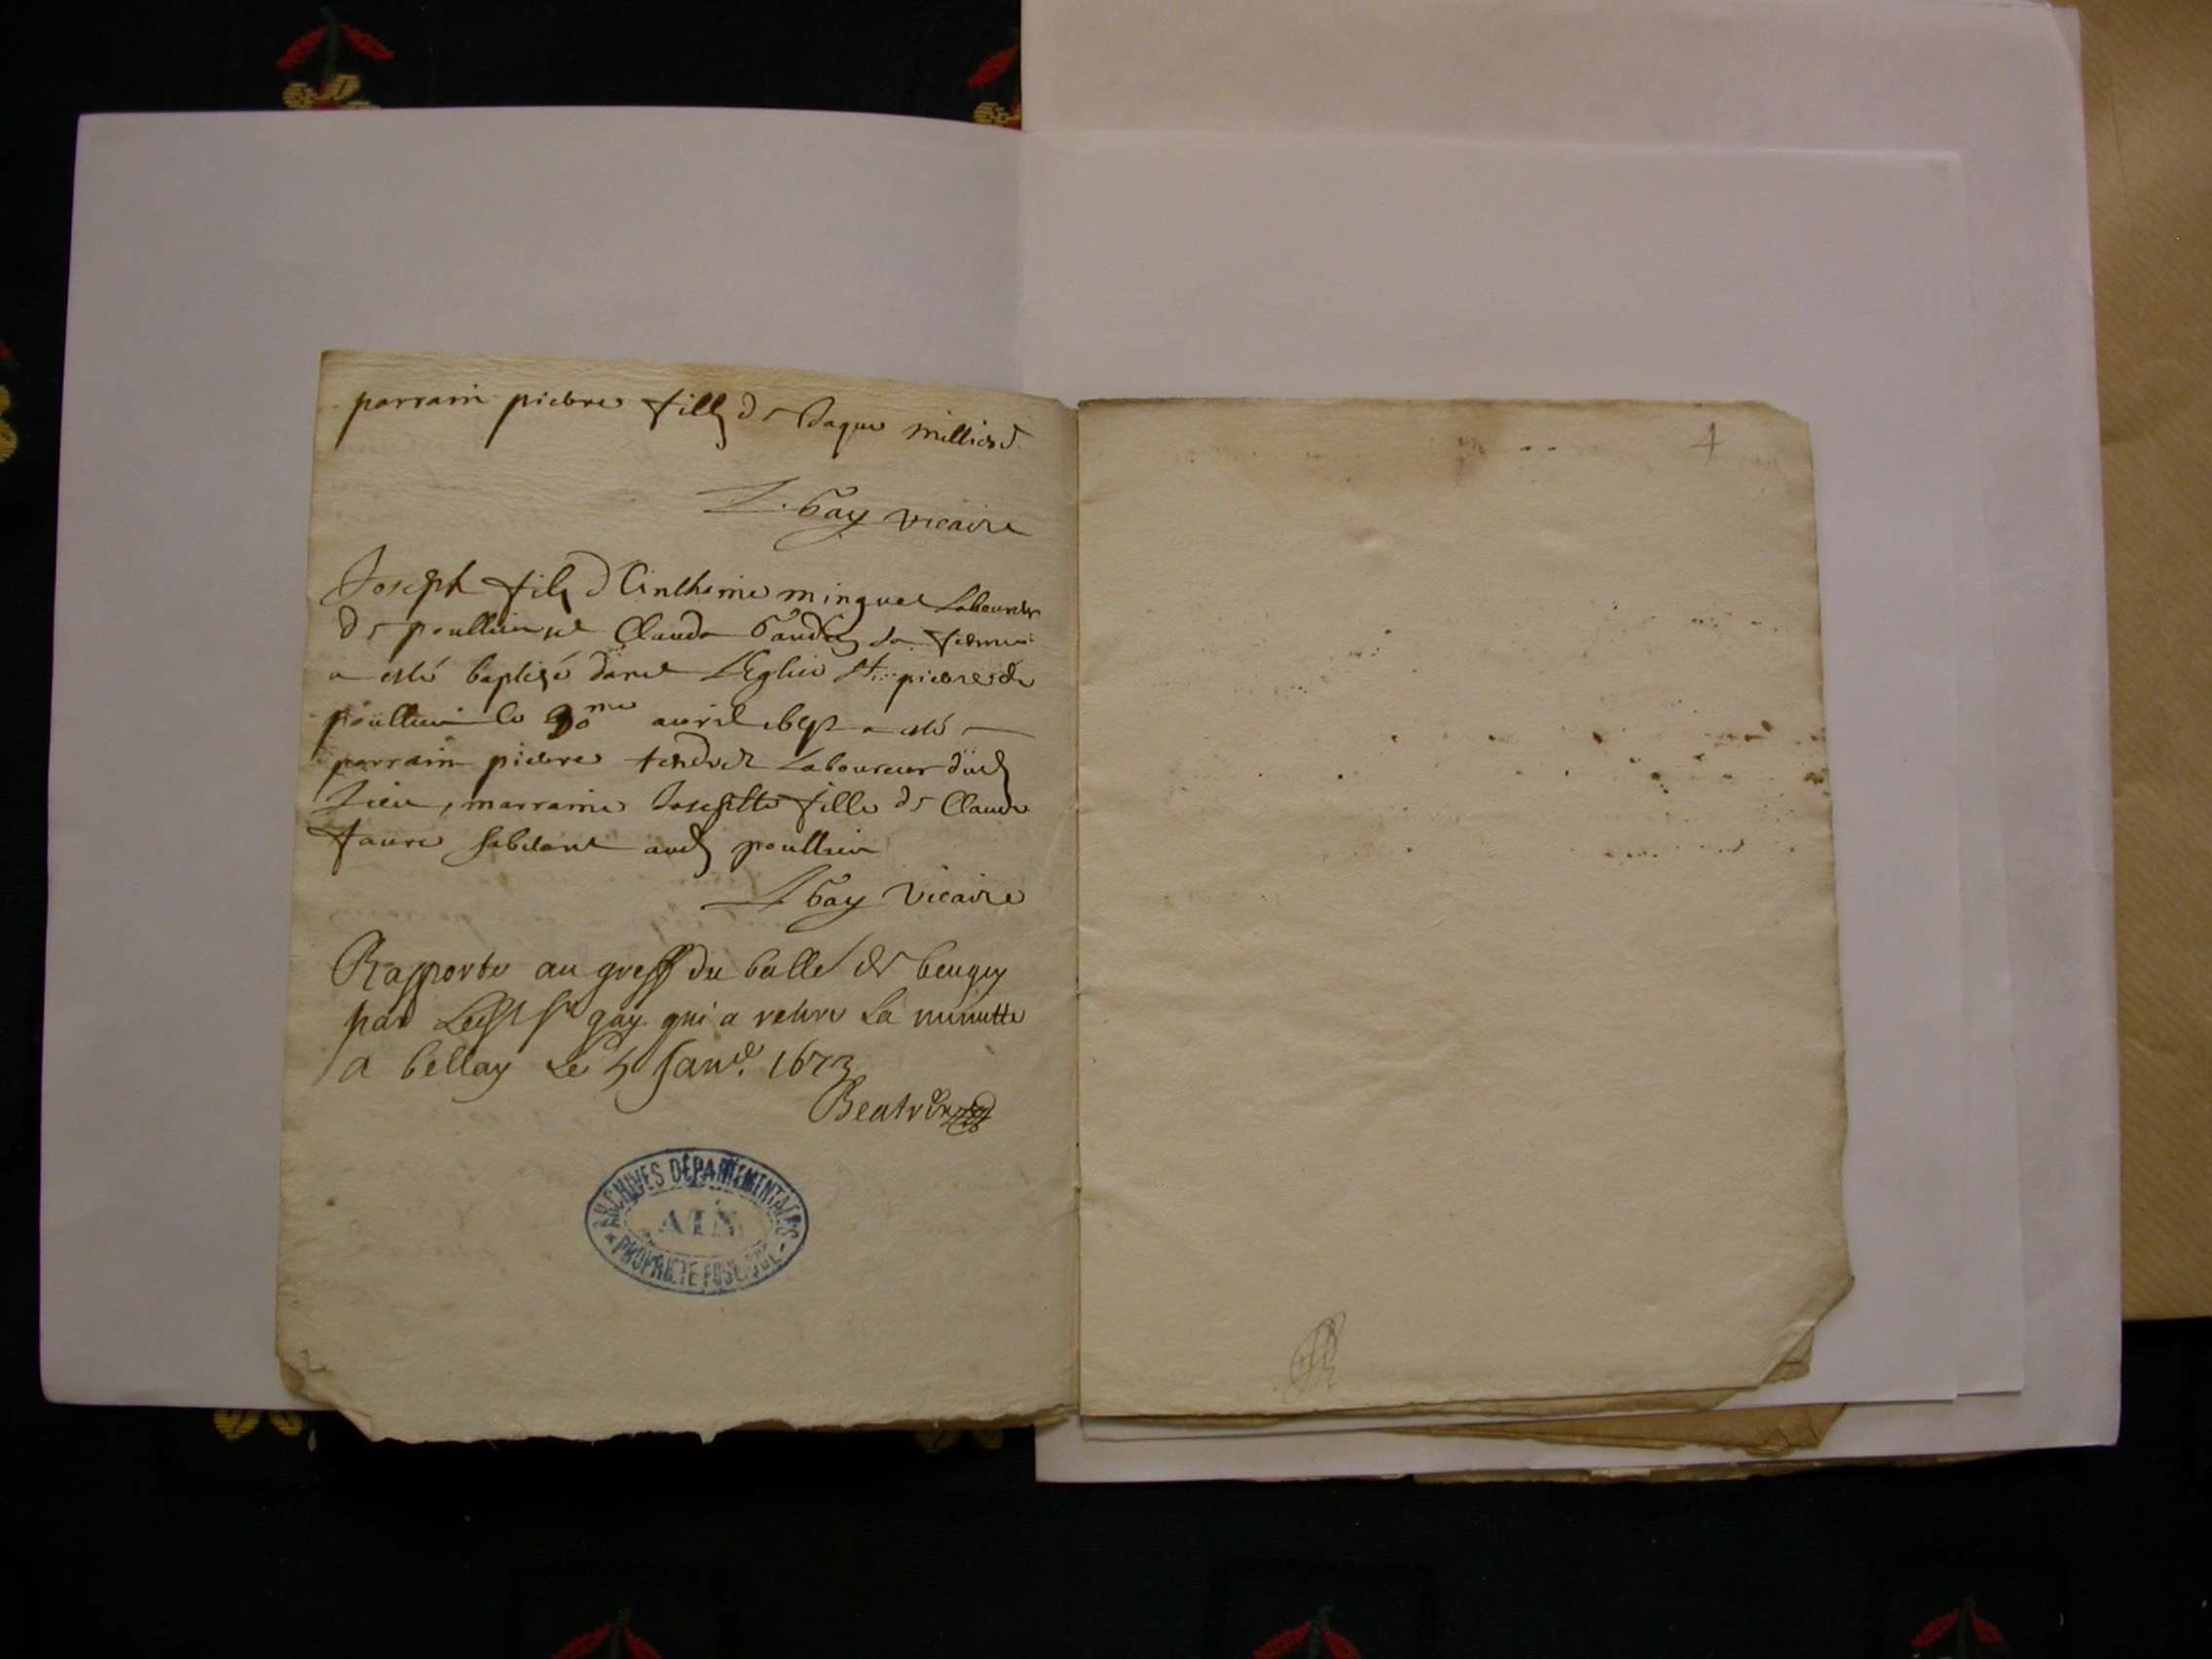 parrain pierre fills de Jaque milliord
L. Gay vicaire
Joseph fils d'Antheme minguet Laboureur
de poullieu et Claude Gaudin sa femme
a esté baptisé dans L'Eglise St pierre de
poullieu le 30me auril a esté
parrain pierre Laboureur dud
Lieu, marraine Josephtte fille de Claude
faure habitant aud poullieu
L Gay Vicaire
Rapporte au greff du balle de beugey
par Sr gay qui a retire La minutte
a bellay Le 5 Janv. 1673
ARCHIVES DÉPARTEMENTALES
AIN
PROPRIETE PUBLIQUE
4